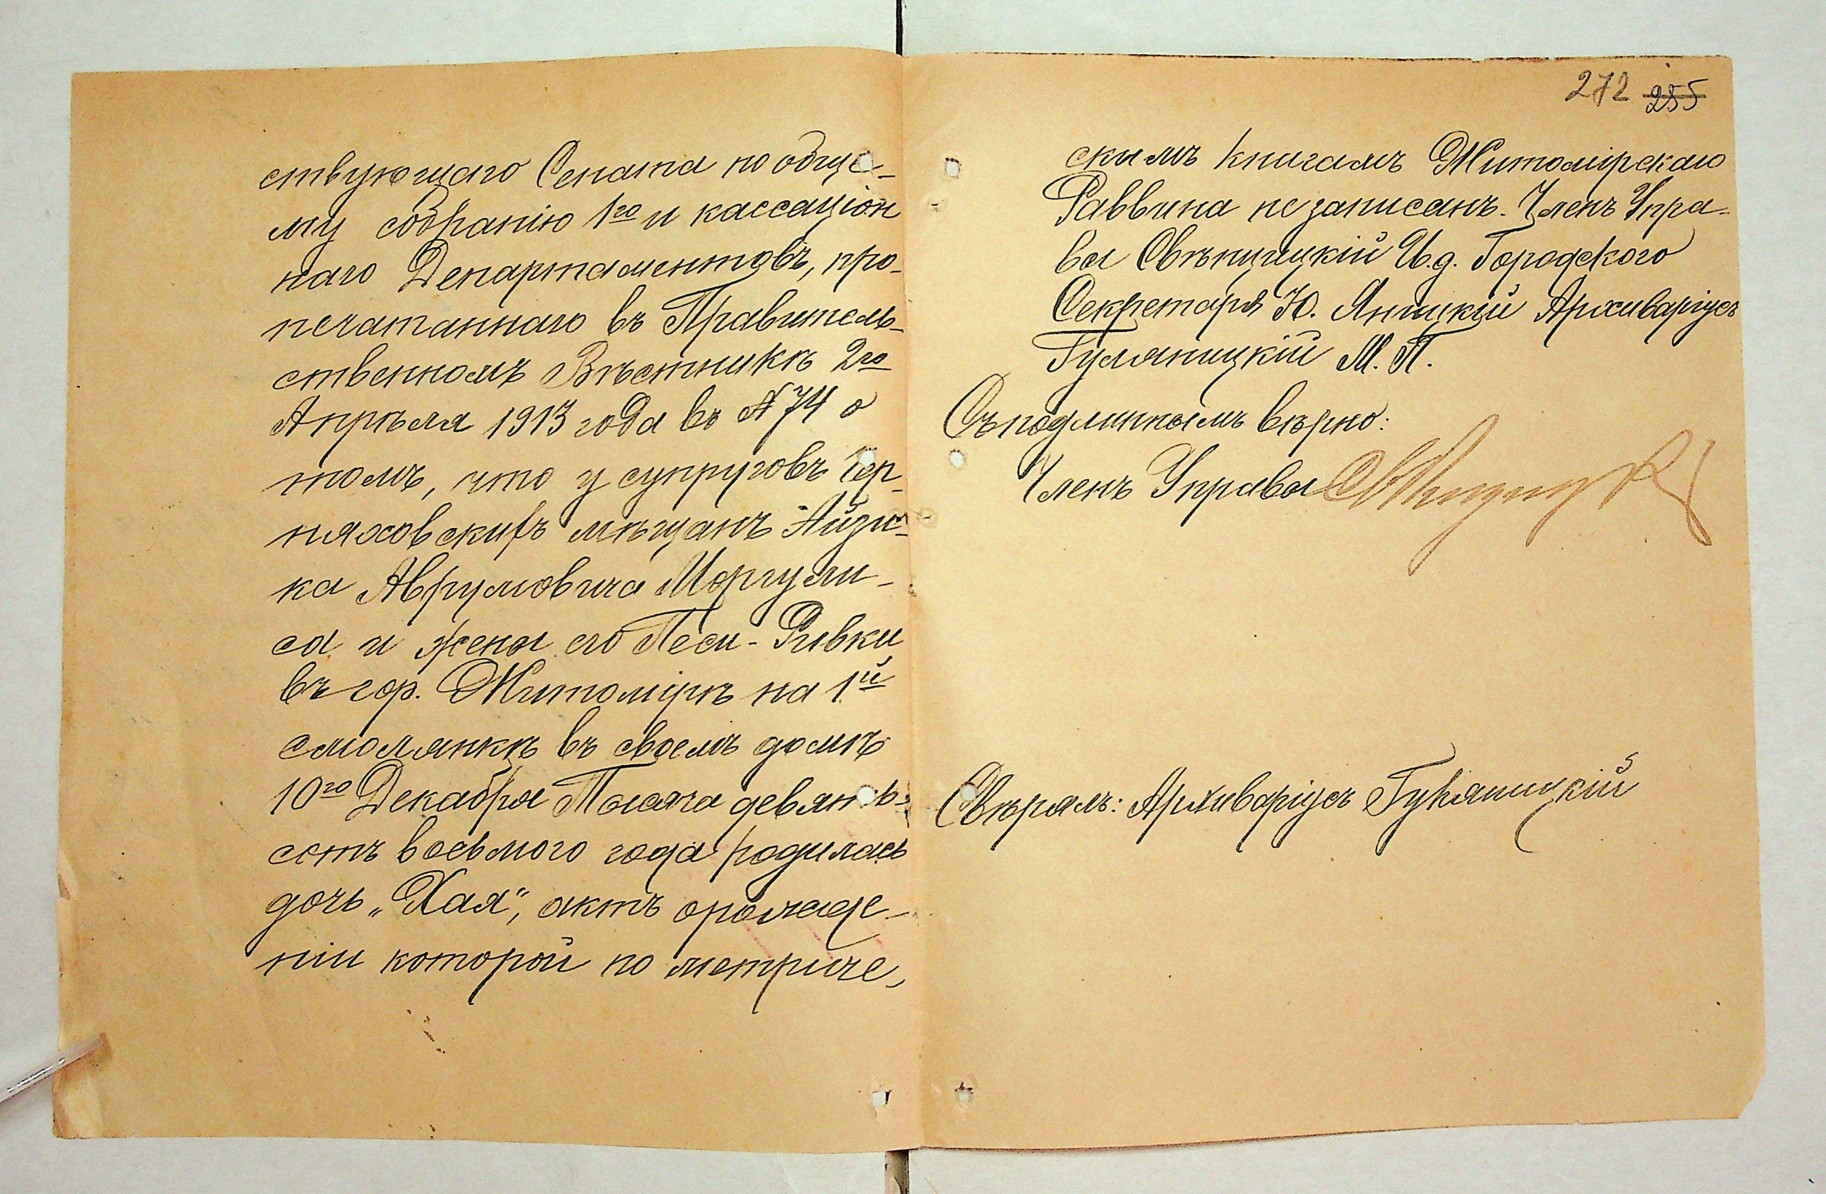 ствующаго Сената по обще-
му собранію 1го и кассаціон
наго Департаментовъ, про-
печатаннаго въ Правитель-
ственномъ Вѣстникѣ 2го
Апрѣля 1913 года въ № 74 о
томъ, что у супруговъ Чер-
няховскихъ мѣщанъ Айзи-
ка Аврумовича Моргули-
са и жены его Песи-Ривки
въ гор. Житомірѣ на 1й
смолянкѣ въ своемъ домѣ
10го Декабря Тысяча девять-
сотъ восьмого года родилась
дочь „Хая", актъ о рожде-
ніи которой по метриче-
272 255
скимъ книгамъ Житомірскаго
Раввина не записанъ. Членъ Упра-
вы Свѣнцицкій И.д. Городского
Секретаря Ю. Яницкій Архиваріусъ
Гуляницкій М. П.
Съ подлиннымъ вѣрно:
Членъ Управы Свѣнцицкій
Свѣрялъ: Архиваріусъ Гуляницкій